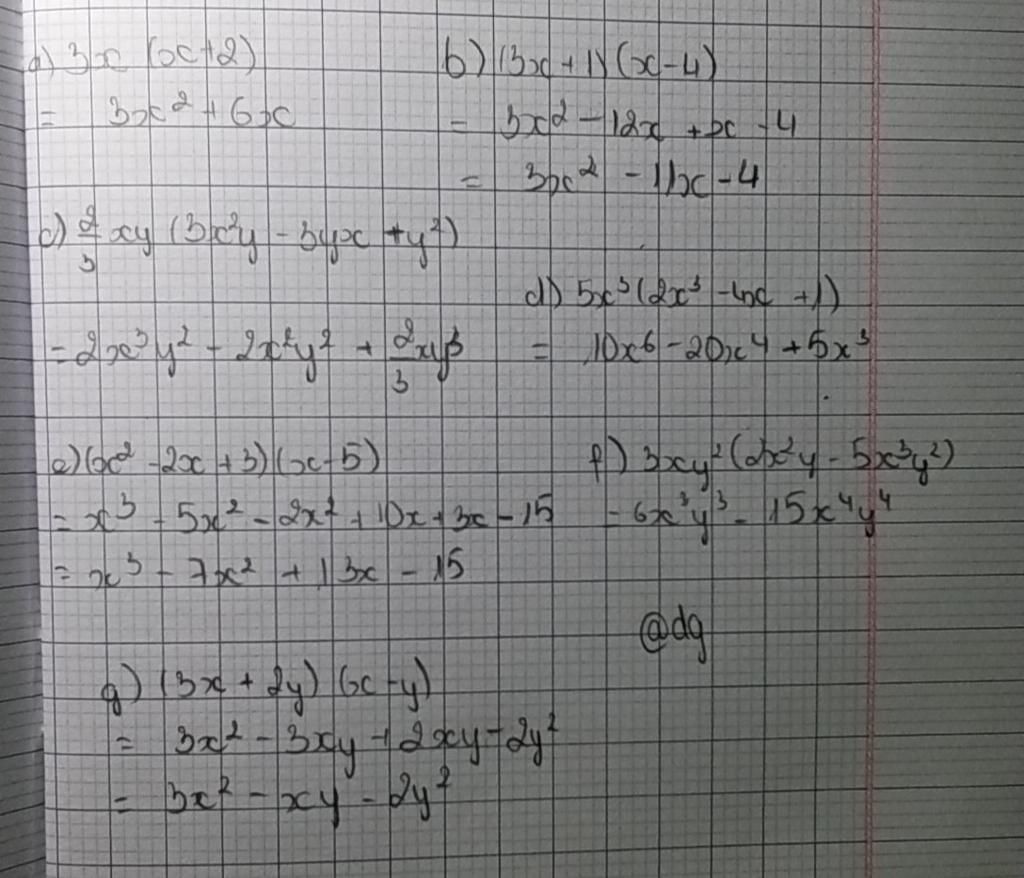 a) 3x (x+2)
= 3x² + 6x
b) (3x + 1) (x - 4)
= 3x² - 12x + x - 4
= 3x² - 11x - 4
c) 2/3 xy (3x²y - 3yx + y²)
= 2x³y² - 2x²y² + 2/3 xy³
d) 5x³ (2x³ - 4x + 1)
= 10x⁶ - 20x⁴ + 5x³
e) (x² - 2x + 3) (x - 5)
= x³ - 5x² - 2x² + 10x + 3x - 15
= x³ - 7x² + 13x - 15
f) 3xy² (2x²y - 5x³y²)
= 6x³y³ - 15x⁴y⁴
@dg
g) (3x + 2y) (x - y)
= 3x² - 3xy + 2xy - 2y²
= 3x² - xy - 2y²